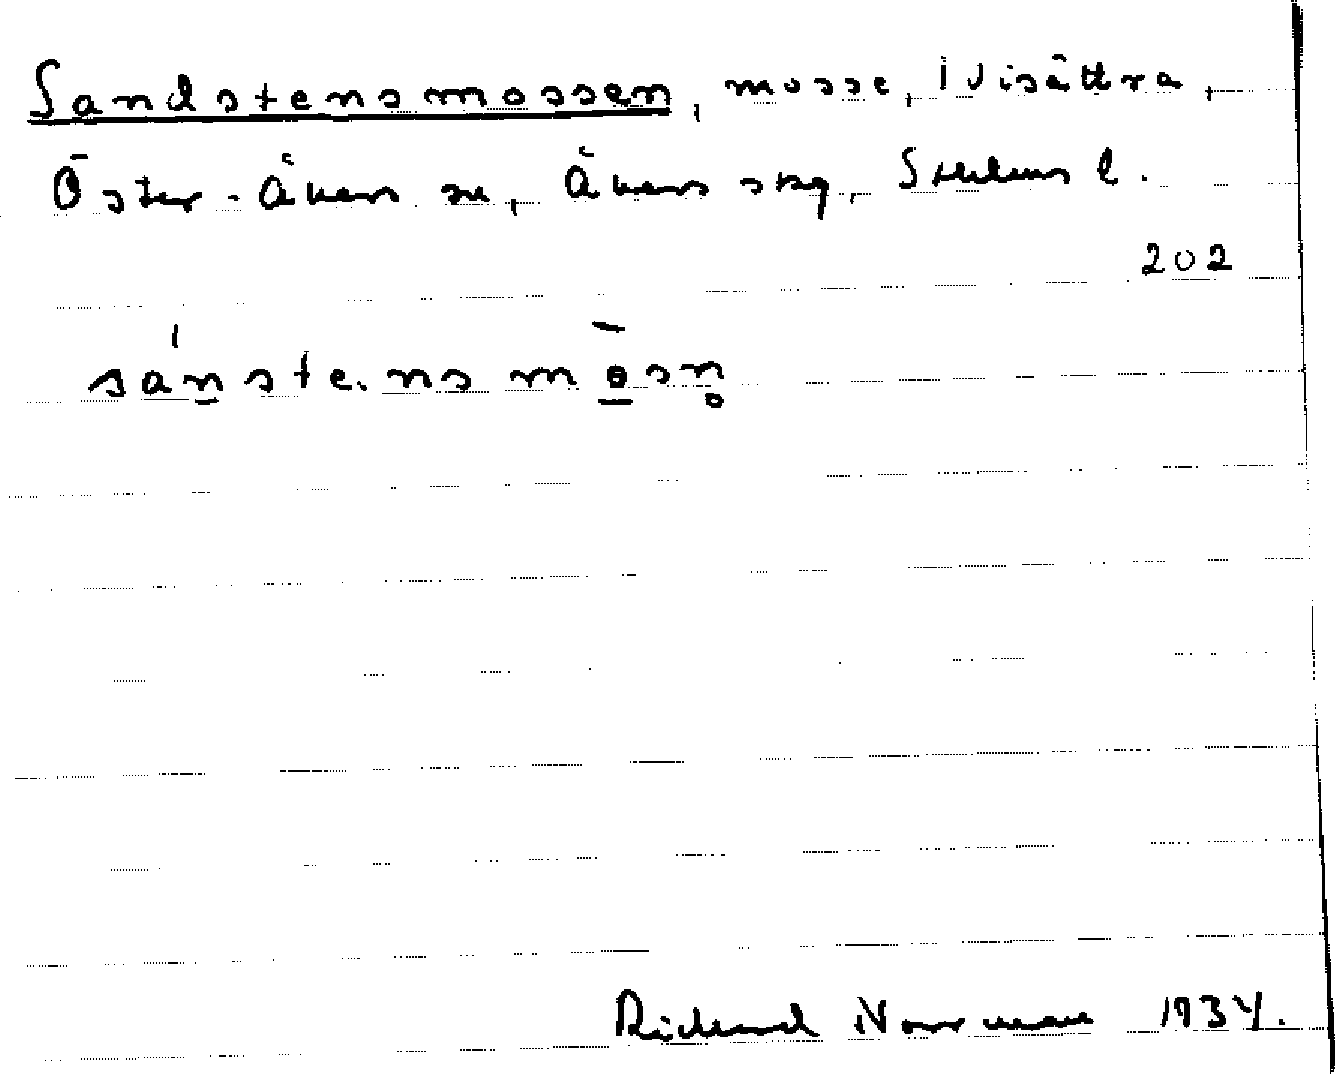 Sandstensmossen, mosse, i Visättra,
Öster-Åkers sn, Åkers skg, Sthlms l.
202
sánste.nsmosn
Rickard Norrman 1934.